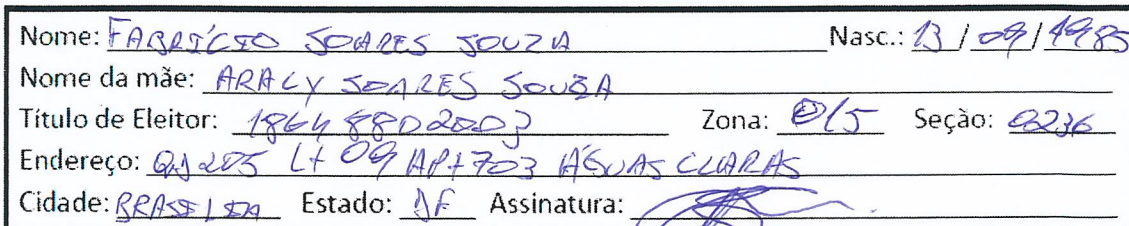 Nome: FABRÍCIO SOARES SOUZA Nasc.: 13/09/1985
Nome da mãe: ARACY SOARES SOUZA
Título de Eleitor: Zona: 015 Seção: 0236
Endereço: 205 Lt 09 APt 703 ÁGUAS CLARAS
Cidade: BRASILIA Estado: DF Assinatura: